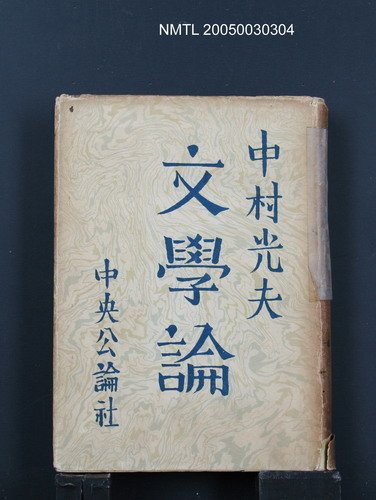 NMTL 20050030304
中村光夫
文學論
中央公論社